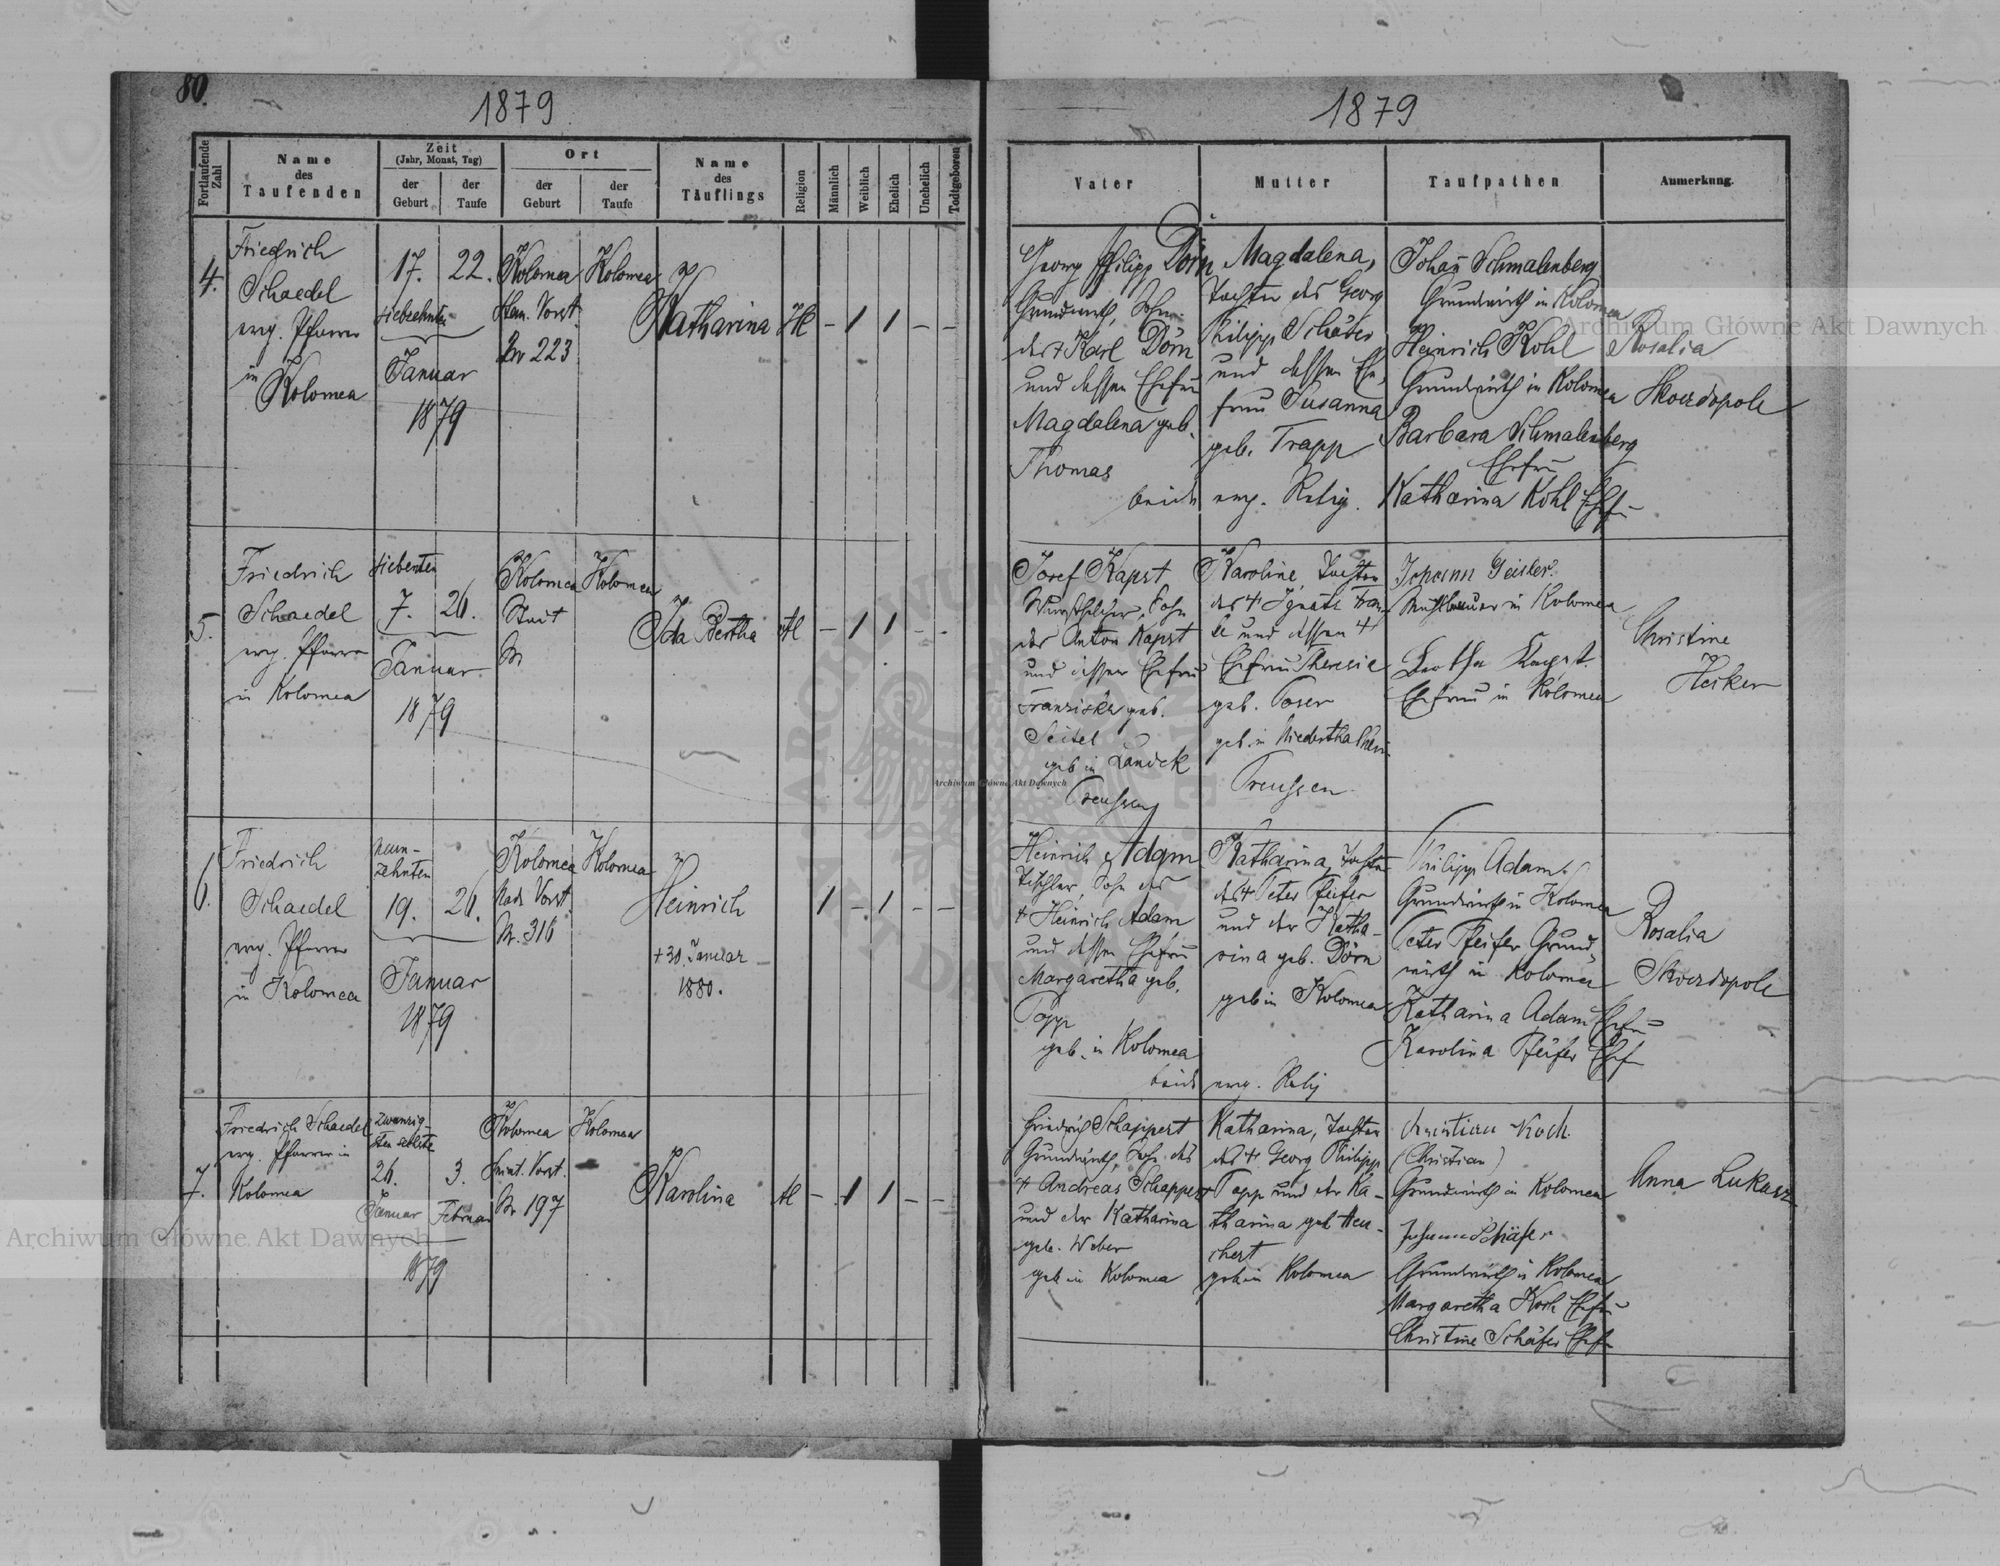 80.
1879
1879
Fortlaufende Zahl
Name des Taufenden
Zeit
(Jahr, Monat, Tag)
der Geburt
der Taufe
Ort
der Geburt
der Taufe
Name des Täuflings
Religion
Männlich
Weiblich
Ehelich
Unehelich
Todtgeboren
Vater
Mutter
Taufpathen
Anmerkung.
4.
Friedrich
Schaedel
evg. Pfarrer
in
Kolomea
17.
siebzehnten
22.
Januar
1879
Kolomea
Vorst.
Nr 223
Kolomea
Katharina
– 1 1 – –
Georg Philipp Dörn
Grundwirth, Sohn
des + Karl Dörn
und dessen Ehefrau
Magdalena geb.
Thomas
beide
Magdalena,
Tochter des Georg
Philipp Schäfer
und dessen Ehe-
frau Susanna
geb. Trapp
evg. Relig.
Johañ Schmalenberg
Grundwirth in Kolomea
Heinrich Kohl
Grundwirth in Kolomea
Barbara Schmalenberg
Ehefrau
Katharina Kohl Ehef
Rosalia
Skordopole
5.
Friedrich
Schaedel
evg. Pfarrer
in Kolomea
siebenten
7.
26.
Januar
1879
Kolomea
Stadt
Nr
Kolomea
Ida Bertha
– 1 1 – –
Josef Kapst
Sohn
des Anton Kapst
und dessen Ehefrau
Franziska geb.
Seitel
geb in Landek
Preussen
Karoline, Tochter
des + Ignatz
und dessen +
Ehefrau Theresie
geb. Poser
geb in
Preussen
Johann Geisler
in Kolomea
Bertha Kapst
Ehefrau in Kolomea
Christine
Hecker
6.
Friedrich
Schaedel
evg. Pfarrer
in Kolomea
neun-
zehnten
19.
26.
Januar
1879
Kolomea
Vorst
Nr. 316
Kolomea
Heinrich
+ 30. Januar
1880.
1 – 1 – –
Heinrich Adam
Tischler, Sohn des
+ Heinrich Adam
und dessen Ehefrau
Margaretha geb.
Popp
geb. in Kolomea
beide
Katharina, Tochter
des + Peter Pfeifer
und der Katha-
rina geb. Dörn
geb in Kolomea
evg. Relig
Philipp Adam
Grundwirth in Kolomea
Peter Pfeifer Grund-
wirth in Kolomea
Katharina Adam Ehefr
Karolina Pfeifer Ehef
Rosalia
Skordopole
7.
Friedrich Schaedel
evg. Pfarrer in
Kolomea
26.
3.
Januar
Februar
1879
Kolomea
Vorst.
Nr 197
Kolomea
Karolina
– 1 1 – –
Friedrich Schappert
Grundwirth, Sohn des
+ Andreas Schappert
und der Katharina
geb. Weber
geb in Kolomea
Katharina, Tochter
des + Georg Philipp
Popp und der Ka-
tharina geb Heu-
chert
geb in Kolomea
Christian Koch
(Christian)
Grundwirth in Kolomea
Johann Schäfer
Grundwirth in Kolomea
Margaretha Koch Ehef
Christine Schäfer Ehef
Anna Lukasz
Archiwum Główne Akt Dawnych
Archiwum Główne Akt Dawnych
Archiwum Główne Akt Dawnych